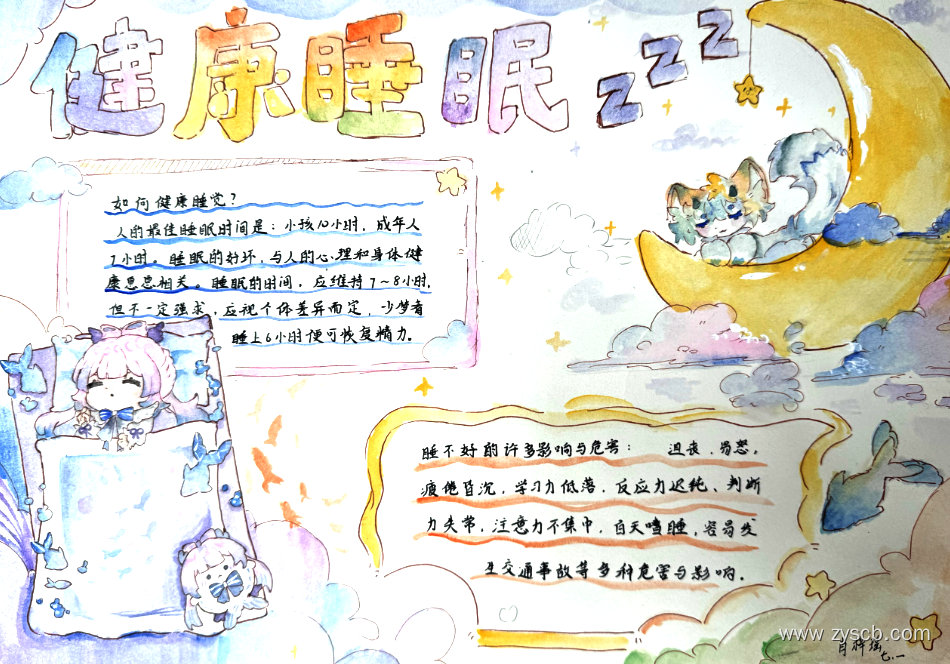 健康睡眠 zzz
如何健康睡觉?
人的最佳睡眠时间是:小孩10小时,成年人
7小时。睡眠的好坏,与人的心理和身体健
康息息相关。睡眠的时间,应维持7~8小时,
但不一定强求,应视个体差异而定,少梦者
睡上6小时便可恢复精力。
睡不好的许多影响与危害: 沮丧、易怒,
疲倦昏沉,学习力低落,反应力迟钝、判断
力失常,注意力不集中,白天嗜睡,容易发
生交通事故等多种危害与影响。
www.zyscb.com
七.一